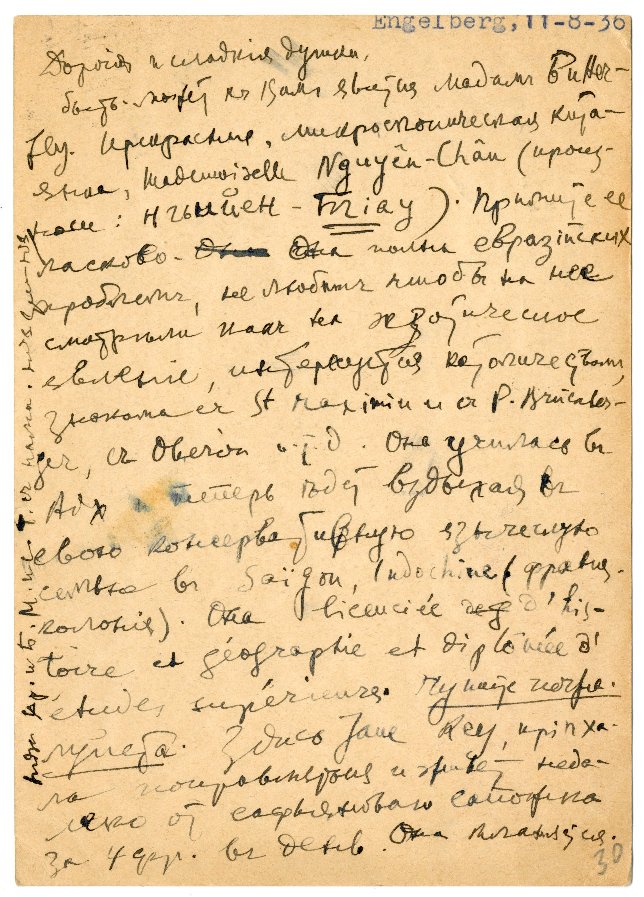 Engelberg, 11-8-36
Дорогія и сладкія душки,
быть-можетъ къ Вамъ явится Мадамъ Butter-
fly. Прекрасная, микроскопическая кита-
янка, Mademoiselle Nguyên-Chân (произ-
носи: нгыйен - ). Примите ее
ласково. Она полна евразійскихъ
проблемъ, не любитъ чтобы на нее
смотрѣли какъ на экзотическое
явленіе, интересуется католичествомъ,
знакома съ St Maximin и съ P. Bruckber-
ger, съ Oberon и.т.д. Она училась въ
Aix и теперь ѣдетъ вздыхая въ
свою консервативную языческую
семью въ Saïgon, Indochine (франц.
колонія). Она licenciée d'his-
toire et géographie et diplômée d'
études supérieures.
Здѣсь Jane Key, пріѣха-
ла поправиться и живетъ неда-
леко отъ сафьяноваго сапожка
за 4 фр. въ день. Она кланяется.
30